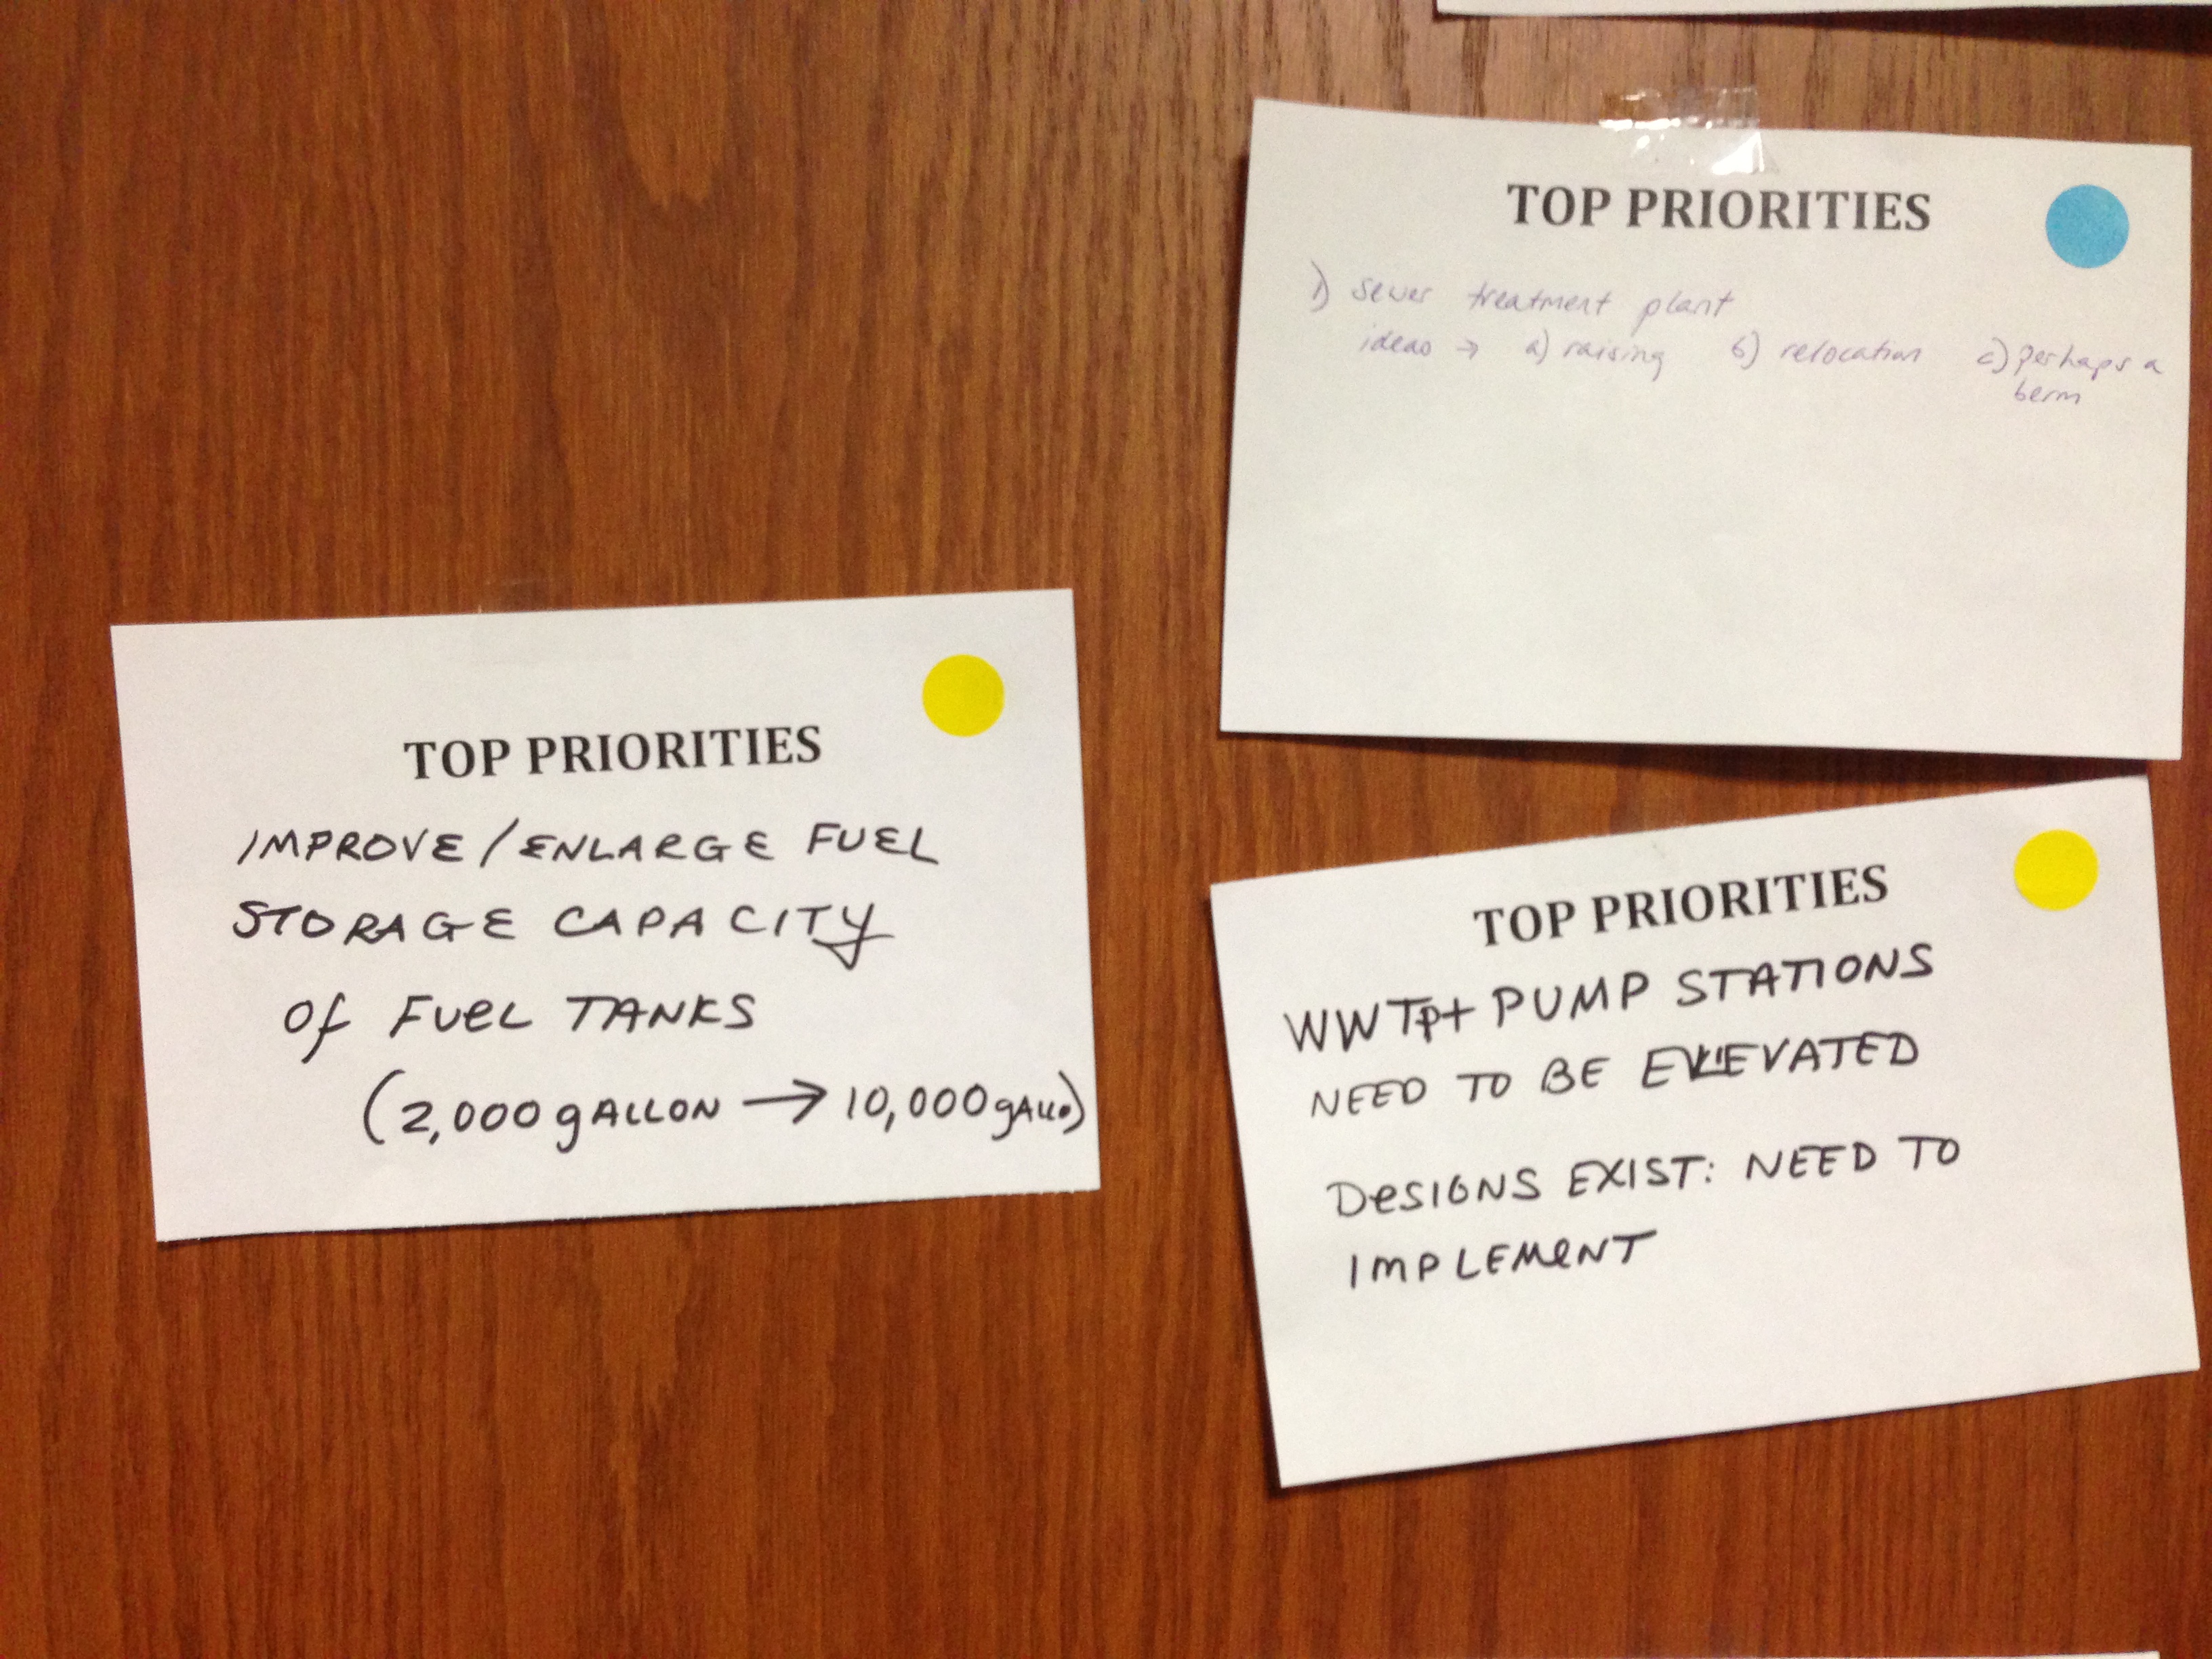 TOP PRIORITIES
1) sewer treatment plant
ideas → a) raising b) relocation c) perhaps a
berm
TOP PRIORITIES
IMPROVE/ENLARGE FUEL
STORAGE CAPACITY
Of FUEL TANKS
(2,000 gALLON → 10,000 gALLO)
TOP PRIORITIES
WWTP+ PUMP STATIONS
NEED TO BE ELEVATED
DESIGNS EXIST: NEED TO
IMPLEMENT